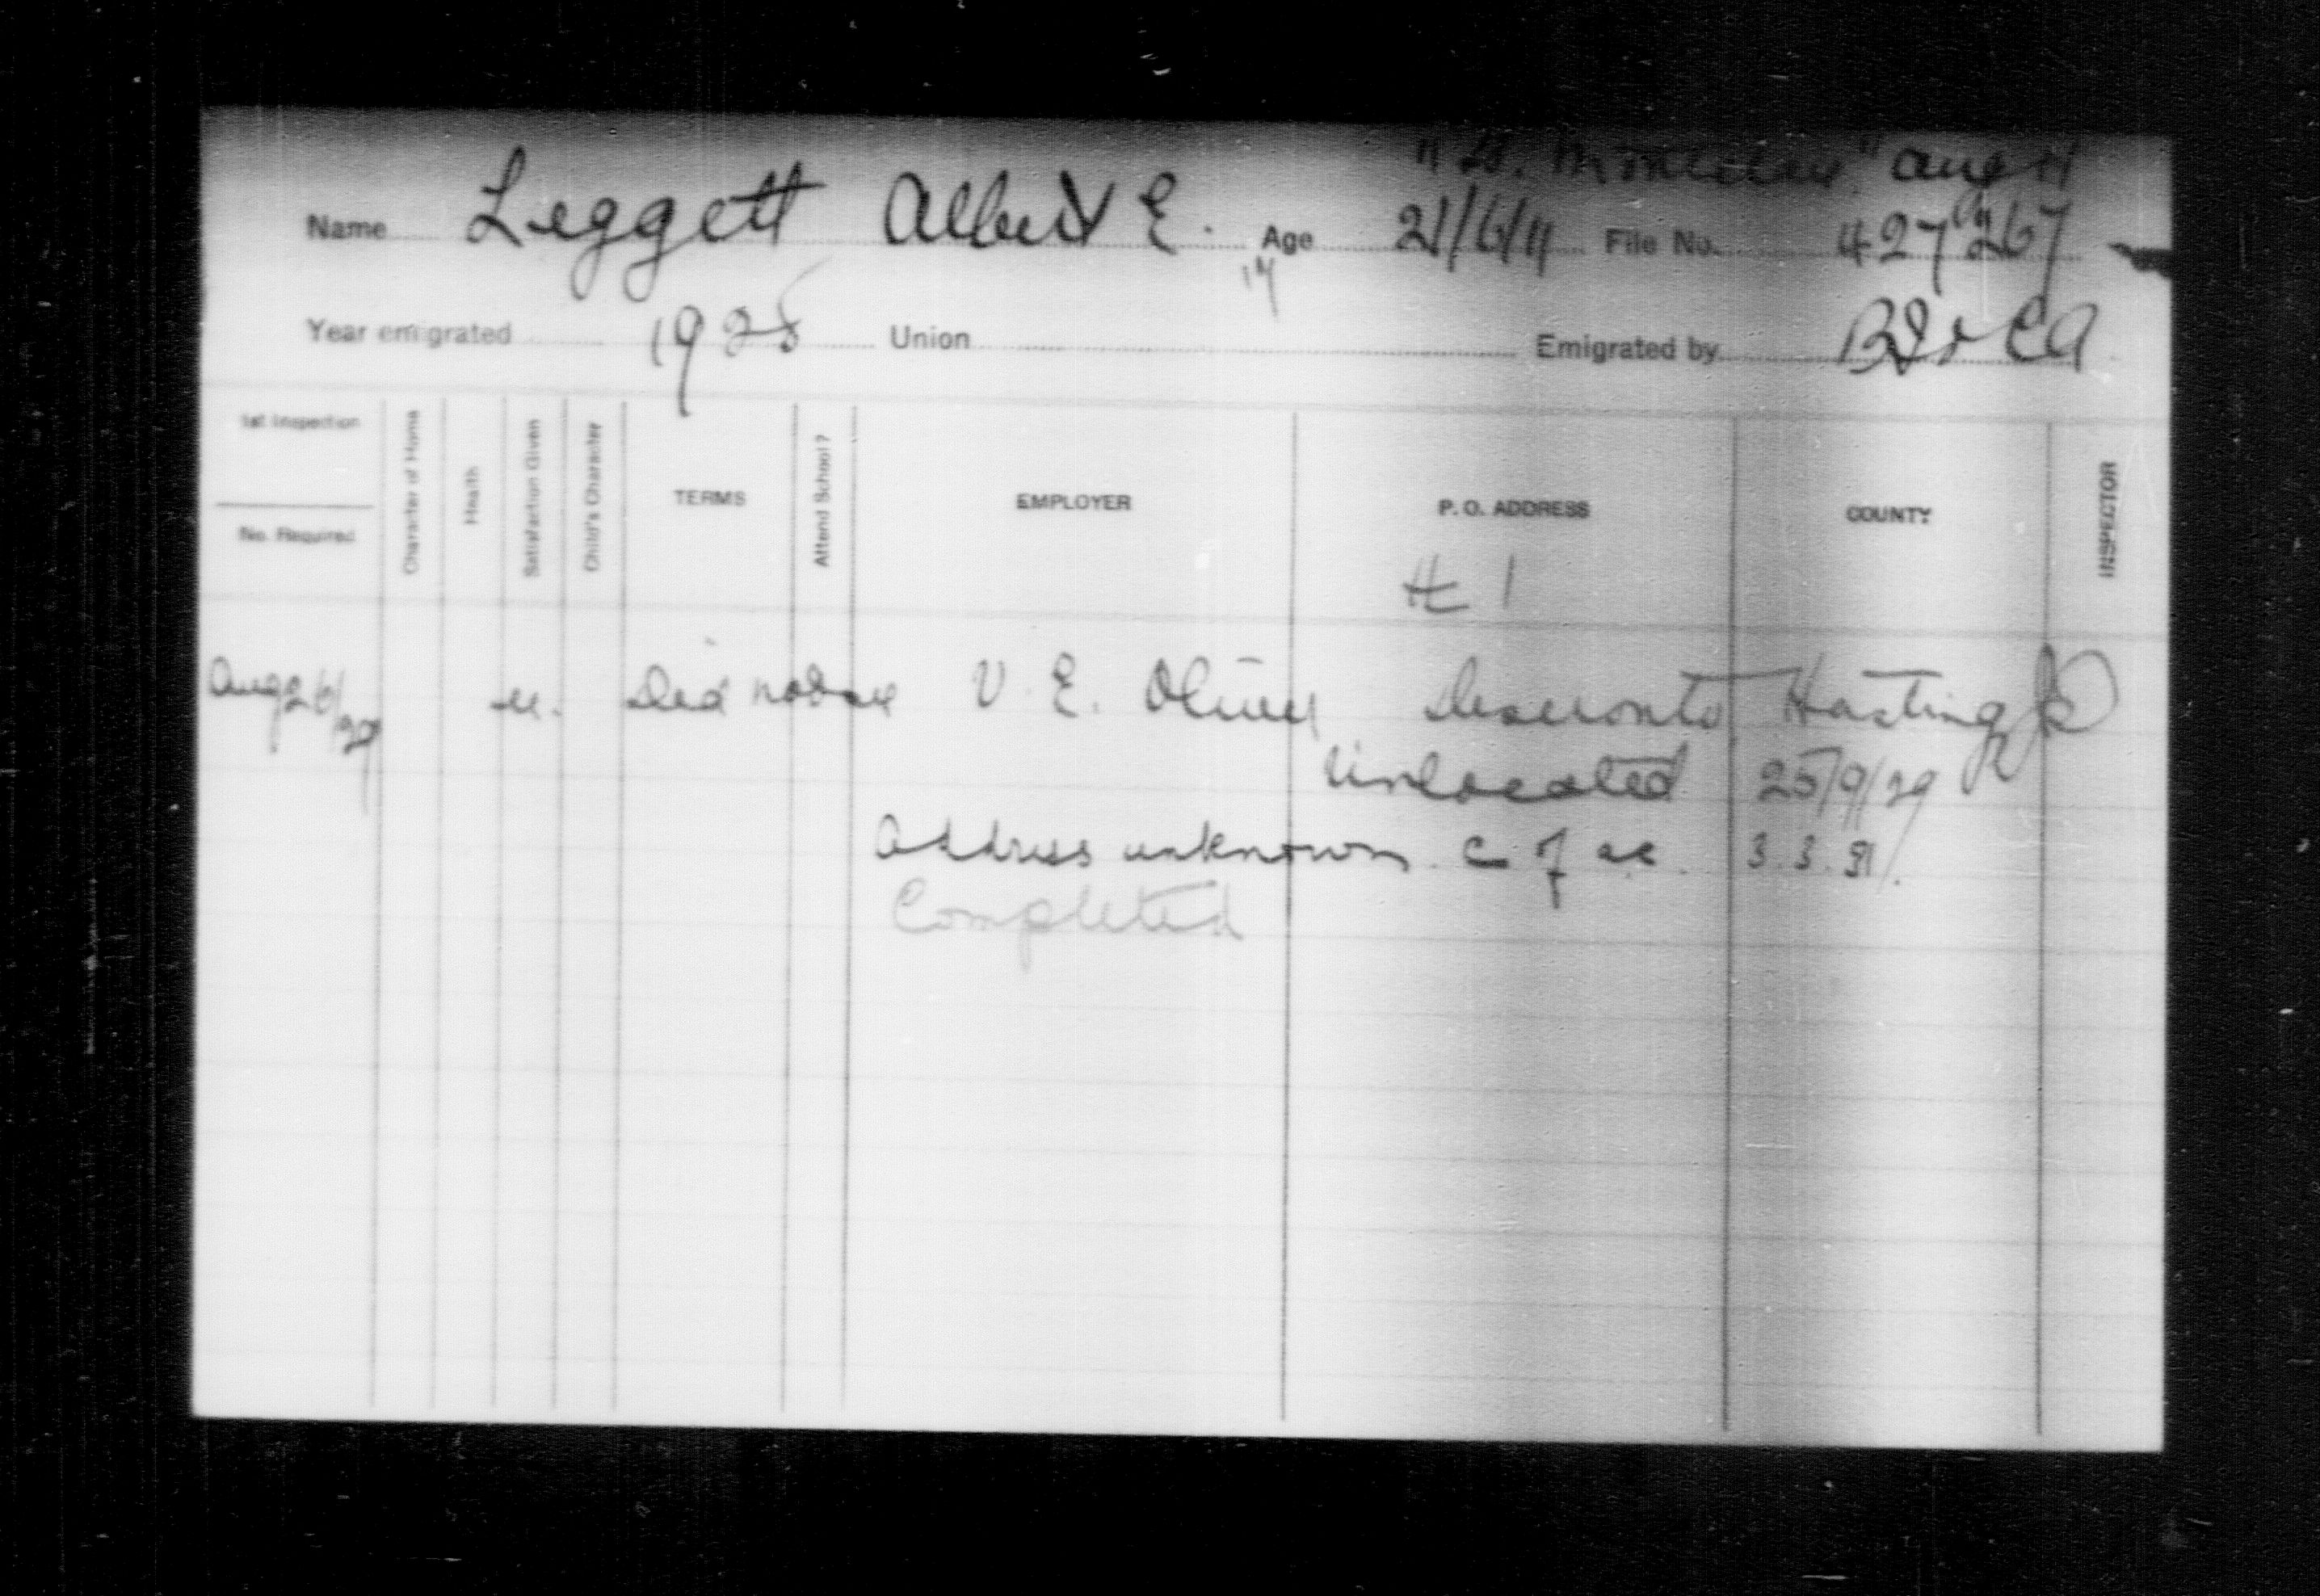 Aug 11
Name Leggett Albert E. Age 21/6/11 File No. 427267
17
Year emigrated 1928 Union Emigrated by
1st Inspection
No. Required
Character of Home
Health
Satisfaction Given
Child's Character
TERMS
Attend School?
EMPLOYER
P. O. ADDRESS
COUNTY
INSPECTOR
H 1
Aug 26/29 Did not see V. E. Oliver Deseronto Hastings
Unlocated 25/9/29
Address unknown 3.3.31.
Completed